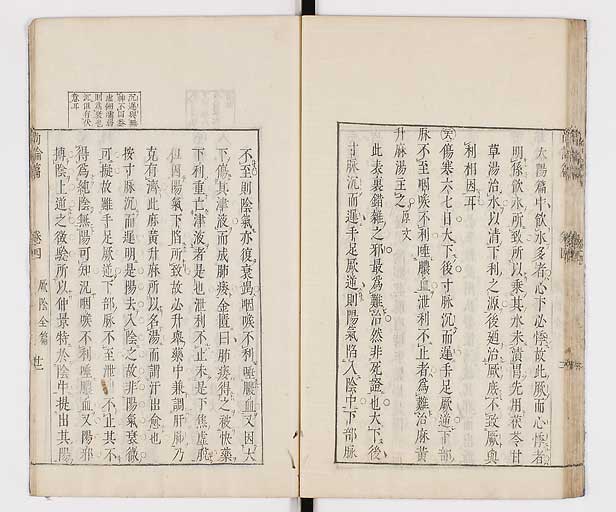 太陽篇中飲水多者心下必悸故此厥而心悸者
明係飲水所致所以乘其水未漬胃先用茯苓甘
草湯治水以清下利之源後廼治厥庶不致厥與
利相因耳
傷寒六七日大下後寸脉沉而遲手足厥逆下部
脉不至咽喉不利唾膿血泄利不止者為難治麻黄
升麻湯主之 原文
此表裏錯雜之邪最為難治然非死證也大下後
寸脉沉而遲手足厥逆則陽氣陷入陰中下部脉
不至則陰氣亦復衰竭咽喉不利唾膿血又因大
下傷其津液而成肺痿金匱曰肺痿得之被快藥
下利重亡津液者是也泄利不止未是下焦虚脱
但因陽氣下陷所致故必升舉藥中兼調肝肺乃
克有濟此麻黄升麻所以名湯而謂汗出愈也
按寸脉沉而遲明是陽去入陰之故非陽氣衰微
可擬故雖手足厥逆下部脉不至泄利不止其不
得為純陰無陽可知況咽喉不利唾膿血又陽邪
搏陰上逆之徵驗所以仲景特於陰中提出其陽
尚論篇
卷四
厥陰全篇